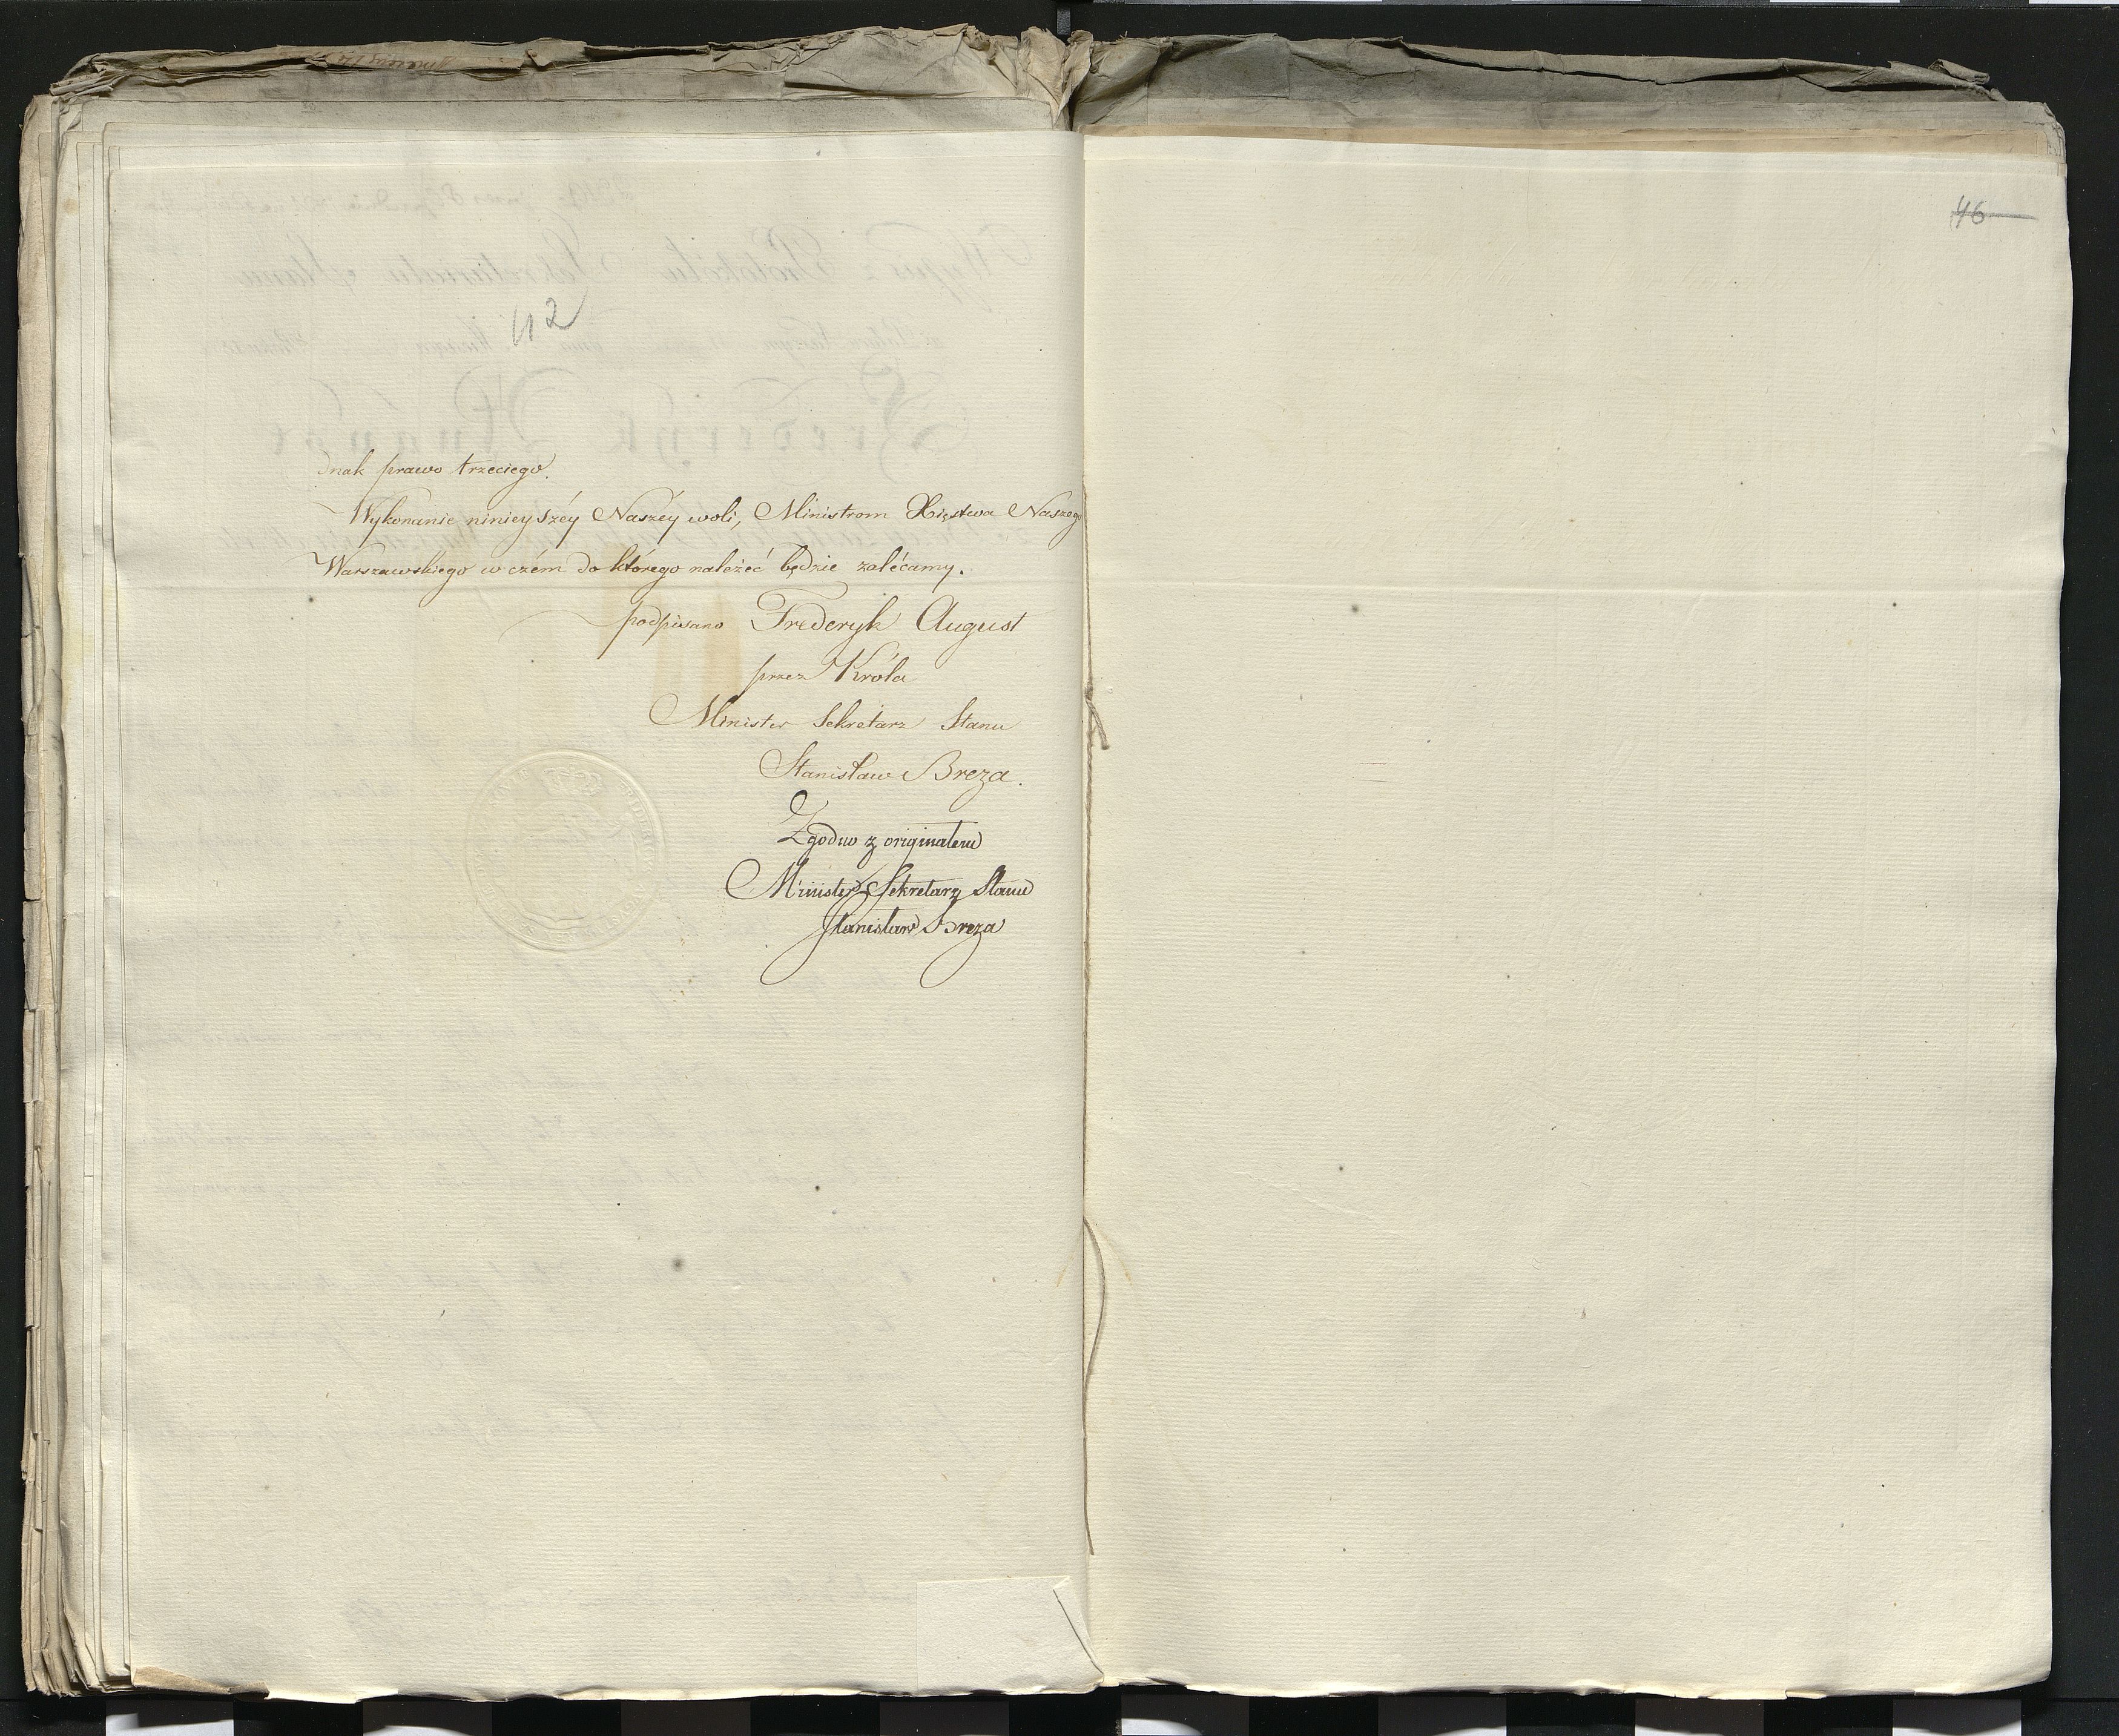 112
dnak prawo trzeciego.
Wykonanie ninieyszéy Naszéy woli, Ministrom Xięstwa Naszego
Warszawskiego w czém do którego należeć będzie zalécamy.
podpisano Frederyk August
przez Króla
Minister Sekretarz Stanu
Stanisław Breza.
Zgodno z originałem
Minister Sekretarz Stanu
Stanisław Breza
46